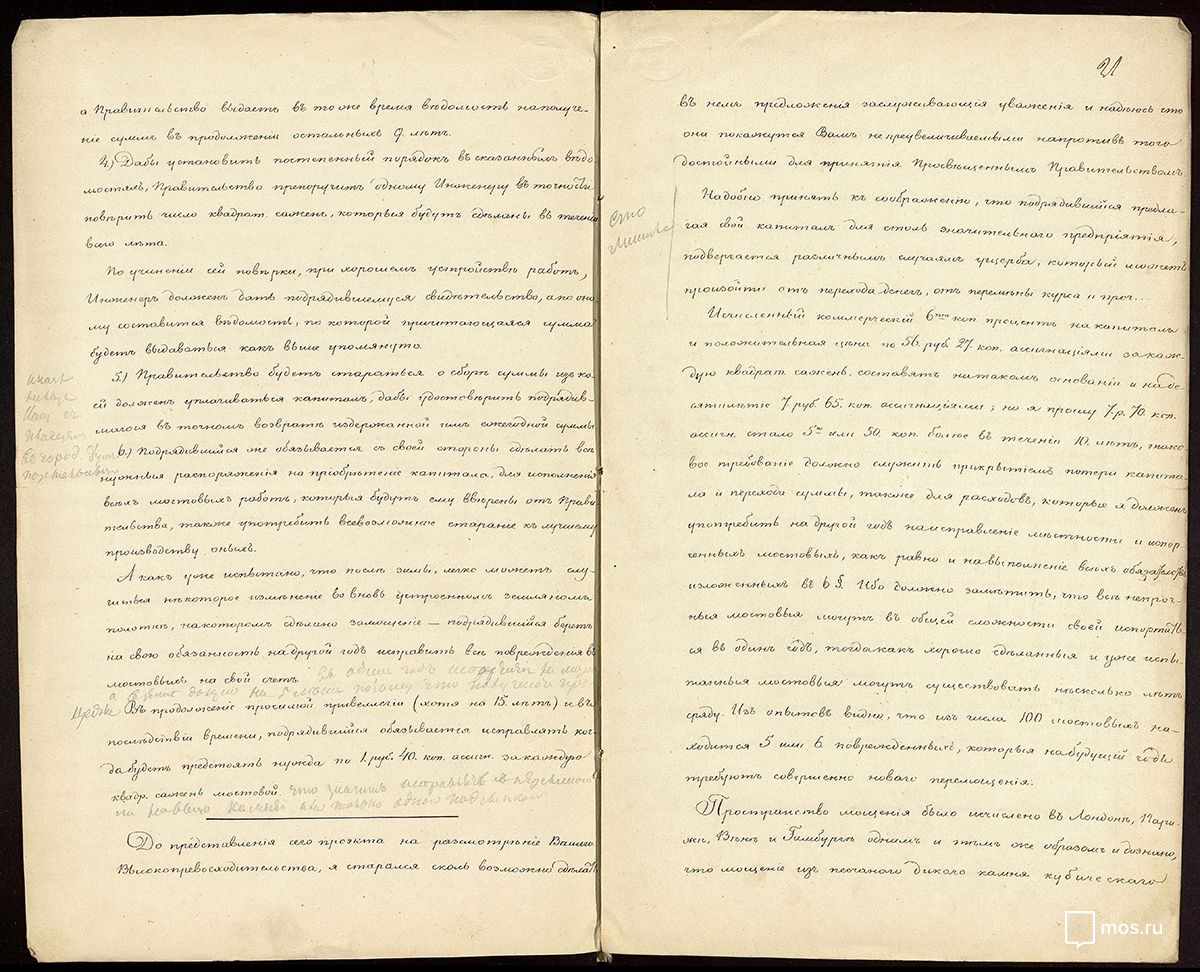 а Правительство выдаетъ въ тоже время вѣдомость на получе-
ніе суммъ въ продолженіи остальныхъ 9. лѣтъ.
4.) Дабы установить постепенный порядокъ въ сказанныхъ вѣдо
мостяхъ, Правительство препоручитъ одному Инженеру въ точности
повѣрить число квадрат. саженъ, которыя будутъ сдѣланы въ теченіи
всего лѣта.
По учиненіи сей повѣрки, при хорошемъ устройствѣ работъ,
Инженеръ долженъ дать подрядившемуся свидѣтельство, а по оно
му составится вѣдомость, по которой причитающаяся сумма
будетъ выдаваться какъ выше упомянуто.
5.) Правительство будетъ стараться о сборѣ суммы изъ ко
ей долженъ уплачиваться капиталъ, дабы удостовѣрить подрядив-
шагося въ точномъ возвратѣ издержанной имъ ежегодной суммы
6.) Подрядившійся же обязывается съ своей стороны сдѣлать всѣ
нужныя распоряженія на пріобрѣтеніе капитала, для исполненія
всѣхъ мостовыхъ работъ, которыя будутъ ему ввѣрены отъ Прави
тельства, также употребить всевозможное стараніе къ лучшему
производству оныхъ.
А какъ уже испытано, что послѣ зимы, легко можетъ слу-
читься нѣкоторое измѣненіе во вновь устроенномъ земляномъ
полотнѣ, на которомъ сдѣлано замощеніе — подрядившійся беретъ
на свою обязанность на другой годъ исправить всѣ поврежденія въ
мостовыхъ на свой счетъ
Въ продолженіе просимой привеллегіи (хотя на 15. лѣтъ) и въ
послѣдствіи времени, подрядившійся обязывается исправлять ког-
да будетъ предстоять нужда по 1. руб. 40. коп. ассигн. за каждую
квадр. сажень мостовой. что значитъ исправить
До представленія сего проэкта на разсмотрѣніе Вашего
Высокопревосходительства, я старался сколь возможно сдѣлать
21
въ немъ предложенія заслуживающія уваженія и надѣюсь что
они покажутся Вамъ не преувеличиваемыми напротивъ того
достойными для принятія Просвѣщеннымъ Правительствомъ
Надобно принять къ соображенію, что подрядившійся предла-
гая свой капиталъ для столь значительного предпріятія,
подвергается различнымъ случаямъ ущерба, который можетъ
произойти отъ перехода денегъ, отъ перемѣны курса и проч...
Исчисленный коммерческій 6ти коп. процентъ на капиталъ
и положительная цѣна по 56. руб. 27. коп. ассигнаціями за каж-
дую квадрат. сажень, составятъ на такомъ основаніи и на де-
сятилѣтіе 7. руб. 65. коп. ассигнаціями; но я прошу 7. р. 70. коп.
ассигн. стало 5ть или 50. коп. болѣе въ теченіи 10. лѣтъ, тако
вое требваніе должно служить прикрытіемъ потери капита-
ла и перехода суммы, также для расходовъ, которые я долженъ
употребить на другой годъ на исправленіе мѣстности и испор-
ченныхъ мостовыхъ, какъ равно и на выполненіе всѣхъ обязательствъ
изложенныхъ въ 6 §. Ибо должно замѣтить, что всѣ непроч-
ныя мостовыя могутъ въ общей сложности своей испортить-
ся въ одинъ годъ, тогда какъ хорошо сдѣланныя и уже испы-
танныя мостовыя могутъ существовать нѣсколько лѣтъ
сряду. Изъ опытовъ видно, что изъ числа 100 мостовыхъ на-
ходится 5 или 6 поврежденныхъ, которыя на будущій годъ
требуютъ совершенно нового перемощенія.
Пространство мощенія было исчислено въ Лондонѣ, Пари-
жѣ, Вѣнѣ и Гамбургѣ однимъ и тѣмъ же образомъ и дознано,
что мощеніе изъ песчаного дикаго камня кубическаго
mos.ru